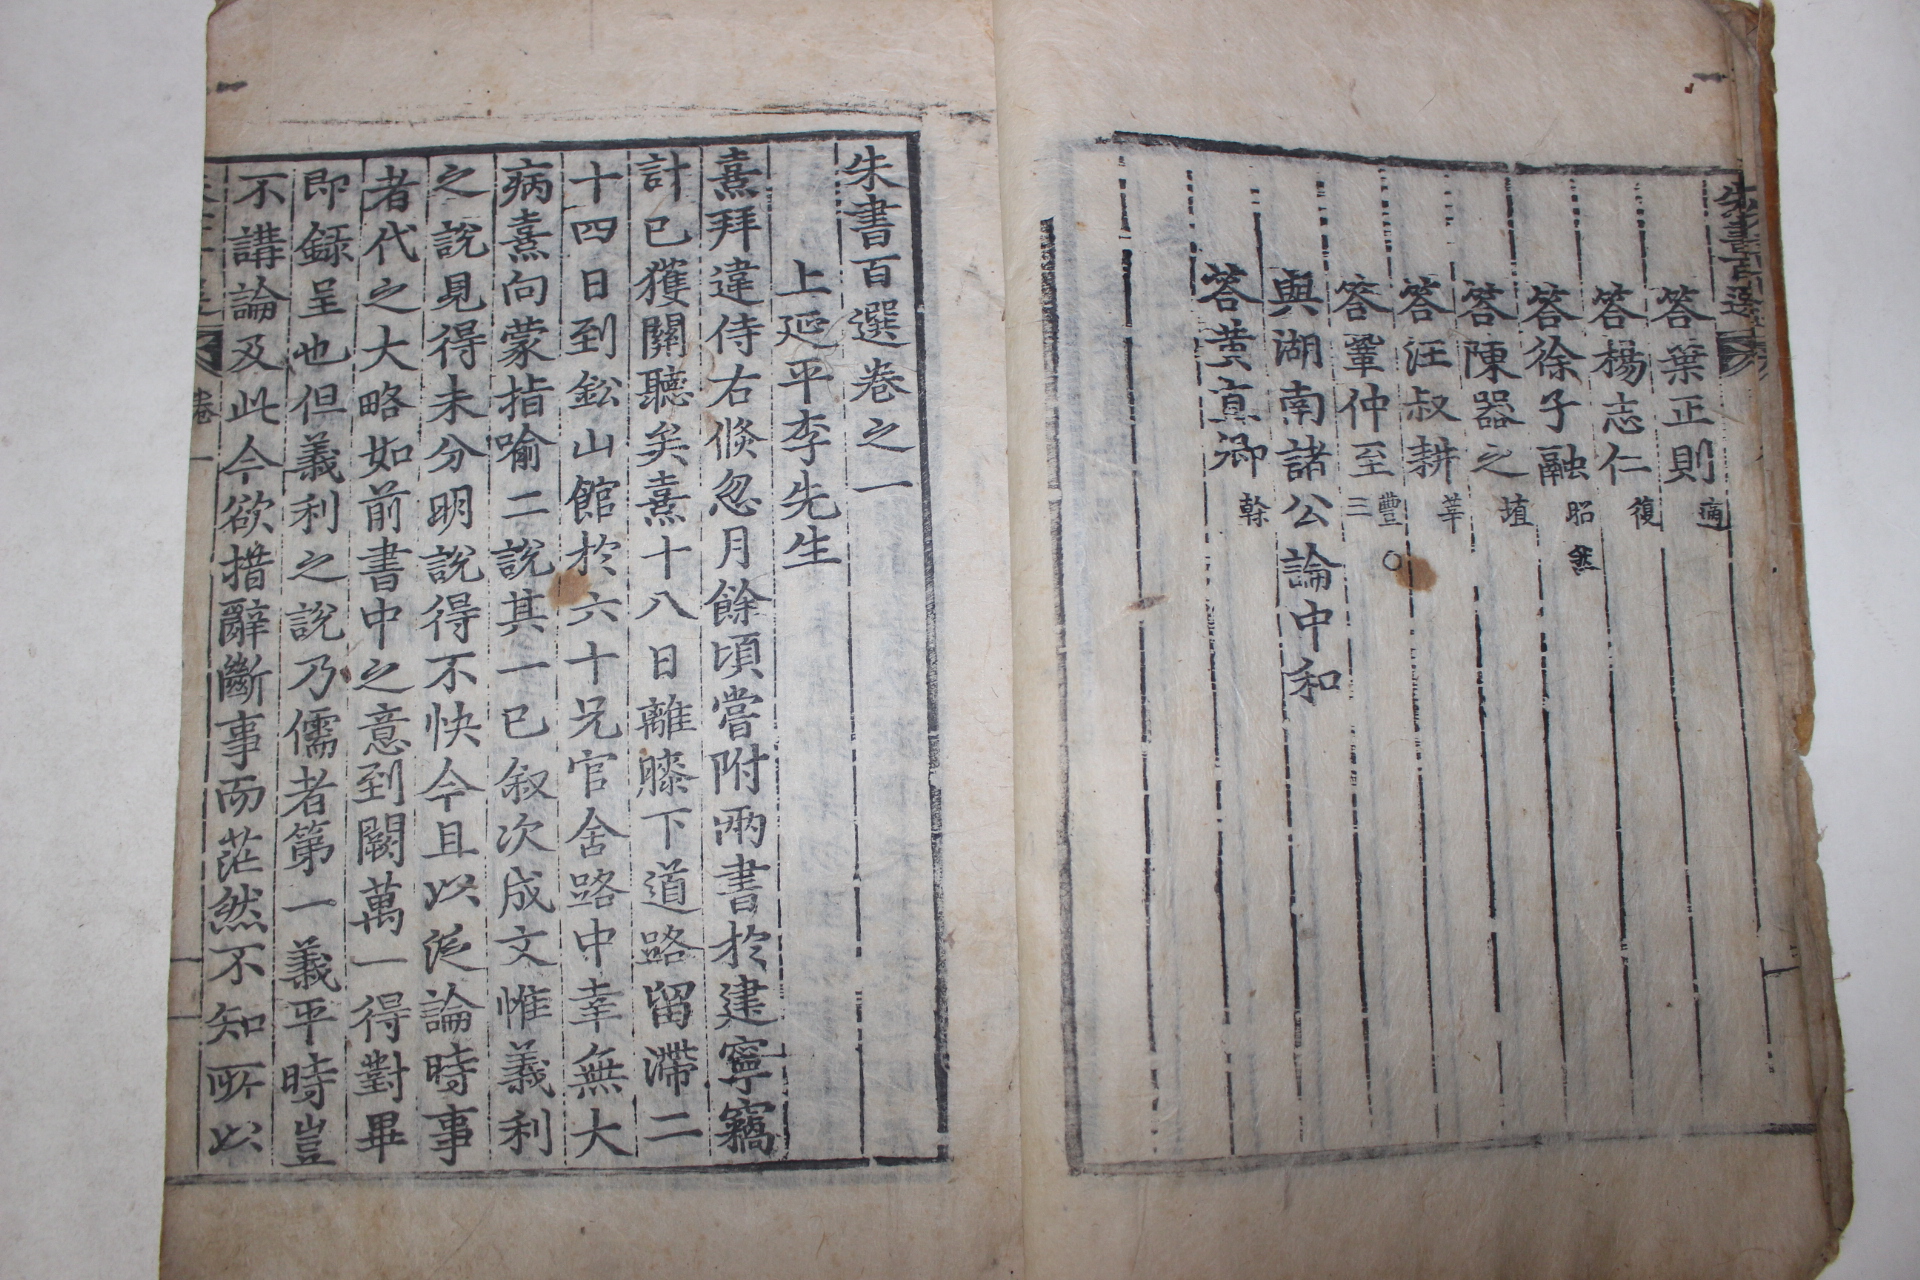 朱書百選
答葉正則 適
答楊志仁 復
答徐子融 昭然
答陳器之 埴
答汪叔耕 莘
答鞏仲至 豐○三
與湖南諸公論中和
答黃直卿 榦
朱書百選卷之一
上延平李先生
熹拜違侍右倏忽月餘頃嘗附兩書於建寧竊
計已獲關聽矣熹十八日離膝下道路留滯二
十四日到鈆山館於六十兄官舍路中幸無大
病熹向蒙指喻二說其一已叙次成文惟義利
之說見得未分明說得不快今且以泛論時事
者代之大略如前書中之意到闕萬一得對畢
即錄呈也但義利之說乃儒者第一義平時豈
不講論及此今欲措辭斷事而茫然不知所以
卷一